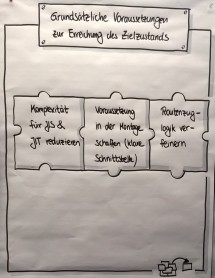 Grundsätzliche Voraussetzungen
zur Erreichung des Zielzustands
Komplexität
für JIS &
JIT reduzieren
Voraussetzung
in der Montage
schaffen (klare
Schnittstelle)
Routenzug-
logik ver-
feinern